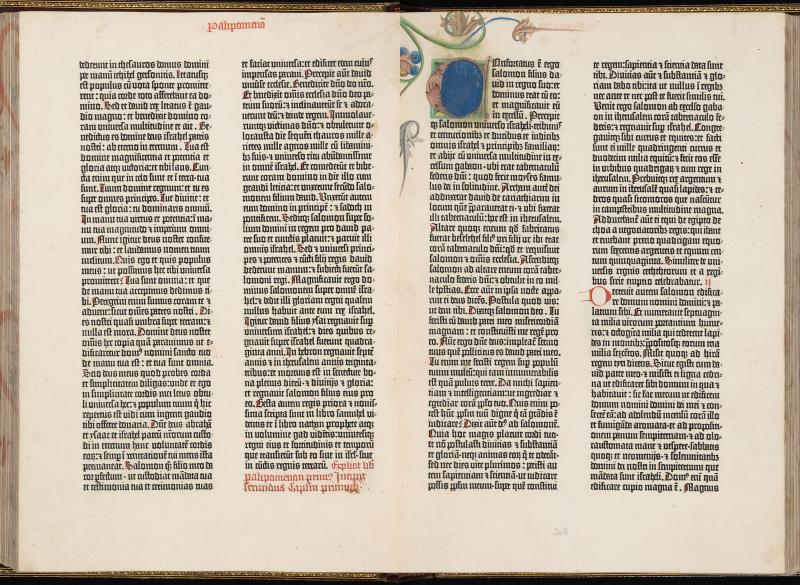 Palipomenō
dederunt in thesauros domus domini
per manū iehihel gersonitis. Letatusq;
est populus cū vota sponte promitte-
rent: quia corde toto offerebant ea do-
mino. Sed et david rex letatus ē gau-
dio magno: et benedixit domino co-
ram universa multitudine et ait. Be-
nedictus es domine deus israhel patris
nostri: ab eterno in eternum. Tua est
domine magnificentia et potentia et
gloria atq; victoria: et tibi laus. Cun-
cta enim que in celo sunt et ī terra: tua
sunt. Tuum domine regnum: et tu es
super omnes principes. Tue divitie: et
tua est gloria: tu dominaris omniū.
In manu tua virtus et potentia: ī ma-
nu tua magnitudo et imperium omni-
um. Nunc igitur deus noster confite-
mur tibi: et laudamus nomen tuum
inclitum. Quis ego et quis populus
meus: ut possimus hec tibi universa
promittere? Tua sunt omnia: et que
de manu tua accepimus dedimus ti-
bi. Peregrini enim sumus coram te et
advene: sicut omnes patres nostri. Di-
es nostri quasi umbra super terram: et
nulla est mora. Domine deus noster
omnis hec copia quā paravimus ut e-
dificaretur domus nomini sancto tuo
de manu tua est: et tua sunt omnia.
Scio deus meus quod probes corda
et simplicitatem diligas: unde et ego
in simplicitate cordis mei letus obtu-
li universa hec: et populum tuum q̄ hic
repertus est vidi cum ingenti gaudio
tibi offerre donaria. Dñe deus abrahā
et ysaac et israhel patrū nr̄orum custo-
di in eternum hanc volūtatē cordis
eoꝝ: et semp ī veneratiōnē tui mens ista
permaneat. Salomoni q; filio meo da
cor pfectum: ut custodiat mādata tua
et testimonia tua et cerimonias tuas
et faciat universa: et edificet edem cuius
impensas paravi. Precepit aūt david
universe ecclesie. Benedicite dño deo nr̄o.
Et benedixit omnis ecclesia dño deo pa-
trum suorū: et inclinaverunt se et adora-
verunt deū: et deinde regem. Immolave-
runtq; victimas dño: et obtulerunt o-
locausta die sequēti thauros mille a-
rietes mille agnos mille cū libamini-
bz suis: et universo ritu abūdantissime
in omnē israhel. Et comederūt et bibe-
runt coram domino in die illo cum
grandi leticia: et unxerunt secūdo salo-
monem filium david. Unxerūt autem
eum domino in principē: et sadoch in
pontificem. Seditq; salomon super so-
lium domini in regem pro david pa-
tre suo et cunctis placuit: et paruit illi
omnis israhel. Sed et universi princi-
pes et potentes et cūcti filij regis david
dederunt manum: et subiecti fuerūt sa-
lomoni regi. Magnificavit ergo do-
minus salomonem super omnē isra-
hel: et dedit illi gloriam regni qualem
nullus habuit ante eum rex israhel.
Igitur david filius ysai regnavit sup
universum israhel: et dies quibus re-
gnavit super israhel fuerunt quadra-
ginta anni. In hebron regnavit septē
annis: et in iherusalem annis triginta-
tribus: et mortuus est in senectute bo-
na plenus dierū et divitijs et gloria:
et regnavit salomon filius eius pro
eo. Gesta autem regis priora et novis-
sima scripta sunt in libro samuhel vi-
dentis et ī libro nathan prophete atq;
in volumine gad videntis: universiq;
regni eius et fortitudinis et temporū
que transierūt sub eo sive in isrl sive
in cūctis regnis terrarū. Explicit libᵉ
palipomenon primus Incipit
secundus Capitm primum.
Confortatus ē ergo
salomon filius da-
vid in regno suo: et
dominus erat cū eo:
et magnificavit eū
in excelsū. Precepit-
q; salomon universo israheli: tribunis
et centurionibz et ducibus et iudicibz
omnis israhel et principibz familiaꝝ:
et abijt cū universa multitudine in ex-
celsum gabaon: ubi erat tabernaculū
federis dñi: quod fecit moyses famu-
lus dei in solitudine. Archam autē dei
adduxerat david de cariathiarim in
locum quē p̄paraverat ei: et ubi fixerat
illi tabernaculū: hoc est in iherusalem.
Altare quoq; eneum qd̄ fabricatus
fuerat beseleehel filiꝰ uri filij ur ibi erat
corā tabernaculo dñi: qd̄ et requisivit
salomon et omnis ecclesia. Ascenditq;
salomon ad altare eneum corā taber-
naculo federis dñi: et obtulit in eo mil-
le hostias. Ecce aūt in ipsa nocte appa-
ruit ei deus dicēs. Postula quod vis:
ut dem tibi. Dixitq; salomon deo. Tu
fecisti cū david patre meo misericordiā
magnam: et constituisti me regē pro
eo. Nūc ergo dñe deus: impleatꝰ sermo
tuus quē pollicitus es david patri meo.
Tu enim me fecisti regem sup populū
tuum multū: qui tam innumerabilis
est quā pulvis terre. Da michi sapien-
tiam et intelligentiam: ut ingrediar et
egrediar corā ipso tuo. Quis enim po-
test hūc pp̄lm tuū digne q̄ tā grādis ē
iudicare? Dixit aūt deus ad salomonē.
Quia hoc magis placuit cordi tuo:
et nō postulasti divitias et substantiā
et gloriā: neq; animas eoꝝ q̄ te oderāt:
sed nec dies vite plurimos: petisti au-
tem sapientiam et scientiā: ut iudicare
possis pp̄lm meum: supr quē constitui
te regem: sapientia et scientia data sunt
tibi. Divicias aūt et substantiā et glo-
riam dabo tibi: ita ut nullus ī regibz
nec ante te nec post te fuerit similis tui.
Venit ergo salomon ab excelso gaba-
on in iherusalem corā tabernaculo fe-
deris: et regnavit sup israhel. Congre-
gavitq; sibi currus et equites: et facti
sunt ei mille quadringenti currus et
duodecim milia equitū: et fecit eos esse
in urbibus quadrigaꝝ et cum rege in
iherusalem. Prebuitq; rex argentum et
aurum in iherusalē quasi lapides: et ce-
dros quasi sicomoros que nascūtur
in campestribus multitudine magna.
Adducebantᵉ aūt ei equi de egipto de
choa a negociatoribz regis: qui ibant
et emebant precio: quadrigam equo-
rum sexcentis argenteis et equum cen-
tum quinquaginta. Similiter de uni-
versis regnis cetheorum et a regi-
bus sirie emptio celebrabatur. II
Decrevit autem salomon edifica-
re domum nomini domini: et pa-
latium sibi. Et numeravit septuagin-
ta milia virorum portantium hume-
ris: et octoginta milia qui cederent lapi-
des in montibz: p̄positosq; eorum tria
milia sexcētos. Misit quoq; ad hirā
regem tyri dicens. Sicut egisti cum da-
vid patre meo: et misisti ei ligna cedri-
na ut edificaret sibi domum in qua et
habitavit: sic fac mecum ut edificem
domum nomini domini dei mei: et con-
secrē eā: ad adolendū incensū corā illo
et fumigādā aromata: et ad propositio-
onem panum sempiternam: et ad olo-
caustomata mane et vespere: sabbatis
quoq; et neomenijs: et solennitatibz
domini dei nostri in sempiternum que
mādata sunt israheli. Domꝰ enī quā
edificare cupio magna ē. Magnus
208